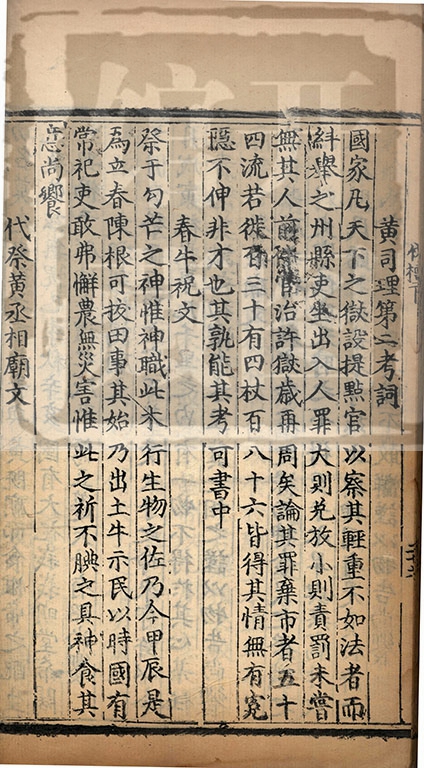 黄司理第二考詞
國家凡天下之獄設提點官以察其輕重不如法者而
糾舉之州縣吏坐出入人罪大則免放小則責罰未嘗
無其人前件官治許獄歳再周矣論其罪棄市者五十
四流若徙百三十有四杖百八十六皆得其情無有寃
隠不伸非才也其孰能其考可書中
春牛祝文
祭于勾芒之神惟神職此木行生物之佐乃今甲辰是
為立春陳根可拔田事其始乃出土牛示民以時國有
常祀吏敢弗懈農無災害惟此之祈不腆之具神食其
忠尚饗
代祭黄丞相廟文